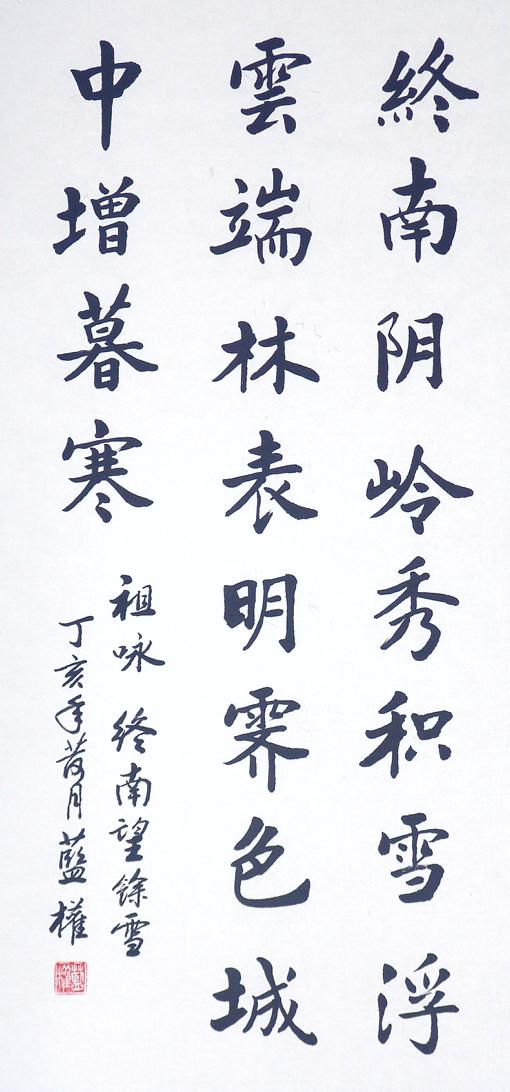 終南阴岭秀积雪浮
雲端林表明霁色城
中增暮寒
祖咏 终南望餘雪
丁亥年月 藍權